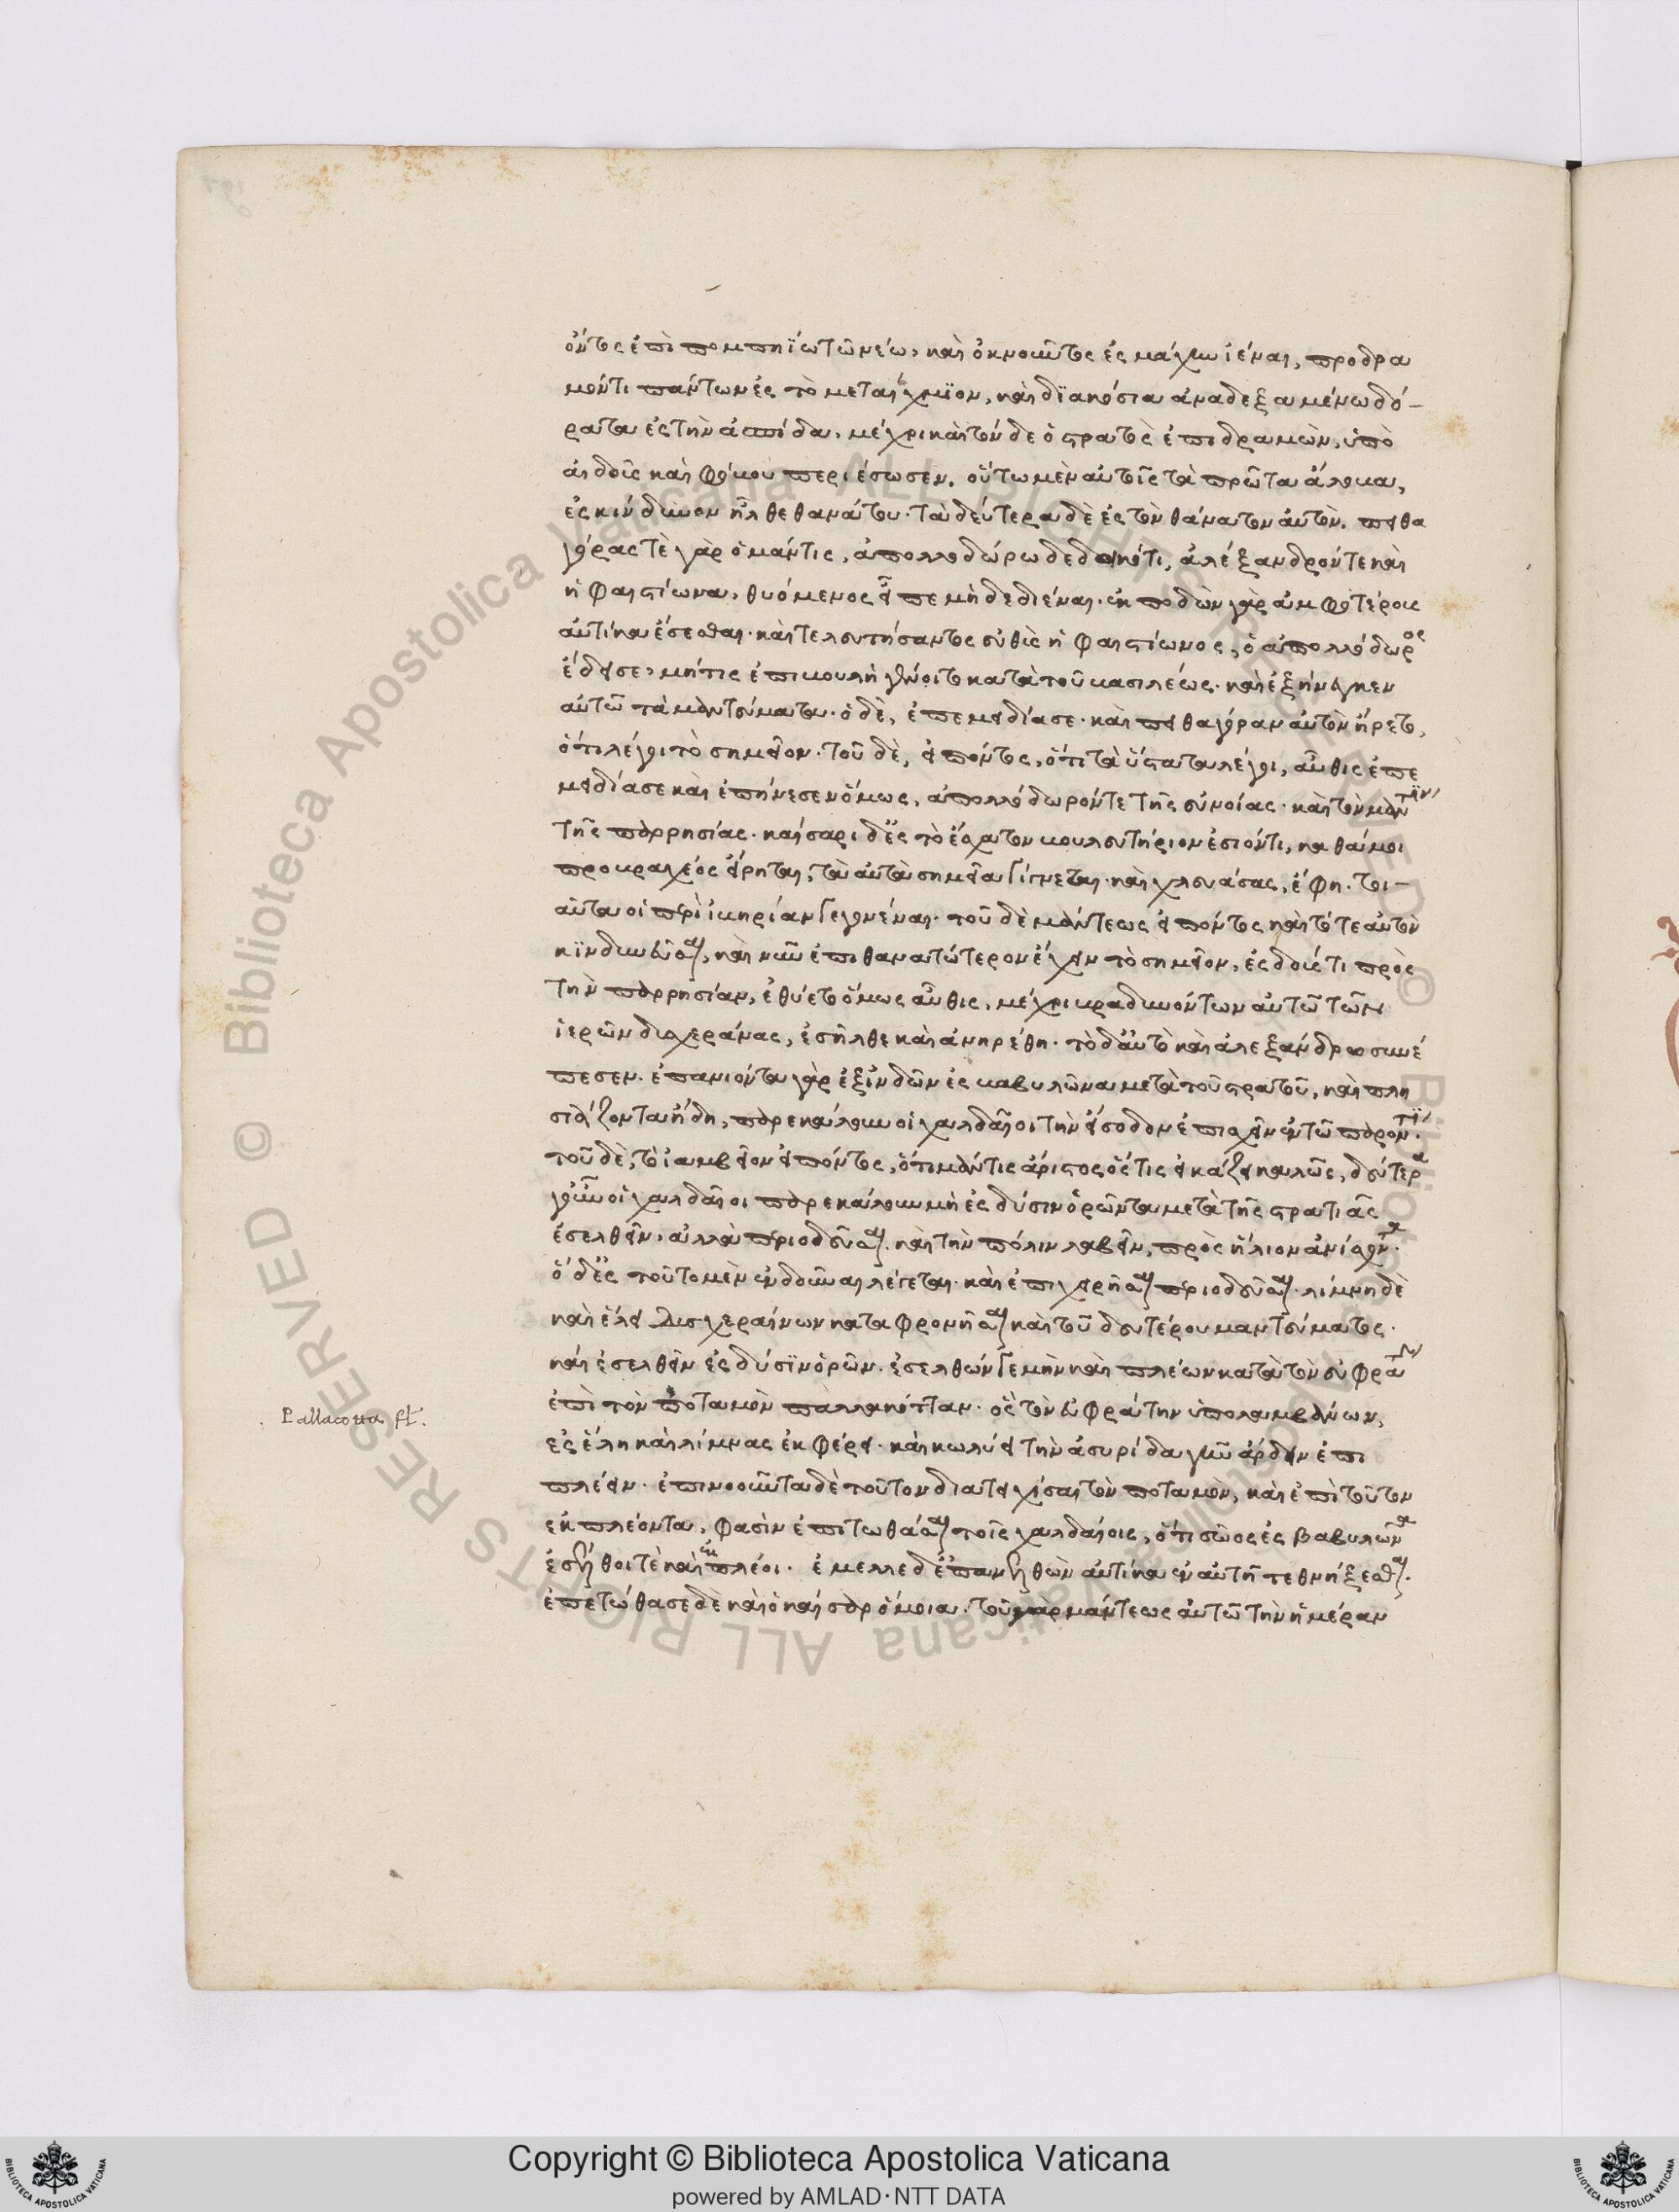 όντος ἐπὶ πομπηΐω τῶ νέω, καὶ ὀκνοῦντος ἐς μάχην ἰέναι, προδρα
μόντι πάντων ἐς τὸ μεταίχμϊον, καὶ δϊακόσια ἀναδεξαμένω δό-
ρατα ἐς τὴν ἀσπίδα, μέχρι καὶ τόνδε ὁ στρατὸς ἐπιδραμὼν, ὑπὸ
αἰδοῖς καὶ φόβου περιέσωσεν. οὕτω μὲν αὐτοῖς τὰ πρῶτα ἄλογα,
ἐς κίνδυνον ἦλθε θανάτου. τὰ δεύτερα δὲ ἐς τὸν θάνατον αὐτὸν. πειθα
γόρας τὲ γὰρ ὁ μάντις, ἀπολλοδώρω δεδοικότι, ἀλέξανδρόν τε καὶ
ἡφαιστίωνα, θυόμενος εἶπε μὴ δεδιέναι. ἐκποδὼν γὰρ ἀμφοτέρους
αὐτίκα ἔσεσθαι. καὶ τελευτήσαντος εὐθὺς ἡφαιστίωνος, ὁ ἀπολλόδωρος
ἔδεισε, μή τις ἐπιβουλὴ γένοιτο κατὰ τοῦ βασιλέως. καὶ ἐξήνεγκεν
αὐτῶ τὰ μαντεύματα. ὁ δὲ, ἐπεμειδίασε. καὶ πειθαγόραν αὐτὸν ἤρετο,
ὅτι λέγοι τὸ σημεῖον. τοῦ δὲ, εἰπόντος, ὅτι τὰ ὕστατα λέγοι, αὖθις ἐπε
μειδίασε καὶ ἐπήνεσεν ὅμως, ἀπολλόδωρόν τε τῆς εὐνοίας. καὶ τὸν μάντιν
τῆς παρρησίας. καίσαρι δ' ἐς τὸ ἔσχατον βουλευτήριον ἐσιόντι, καθά μοι
προ βραχέος εἴρηται, τὰ αὐτὰ σημεῖα γίγνεται. καὶ χλευάσας, ἔφη. τοι-
αῦτα οἱ περὶ ἰβηρίαν γεγονέναι. τοῦ δὲ μάντεως εἰπόντος καὶ τότε αὐτὸν
κϊνδυνεῦσαι, καὶ νῦν ἐπιθανατώτερον ἔχειν τὸ σημεῖον, ἐς δούς τι πρὸς
τὴν παρρησίαν, ἐθύετο ὅμως αὖθις, μέχρι βραδυνόντων αὐτῶ τῶν
ἱερῶν δυσχεράνας, ἐσῆλθε καὶ ἀνηρέθη. τὸ δ' αὐτὸ καὶ ἀλεξάνδρω συνέ
πεσεν. ἐπανιόντα γὰρ ἐξ ἰνδῶν ἐς βαβυλῶνα μετὰ τοῦ στρατοῦ, καὶ πλη
σιάζοντα ἤδη, παρεκάλουν οἱ χαλδαῖοι τὴν εἴσοδον ἐπισχεῖν ἐν τῶ παρόντϊ.
τοῦ δὲ, τὸ ἰαμβεῖον εἰπόντος, ὅτι μάντις ἄριστος ὅστις εἰκάζει καλῶς, δεύτερα
γοῦν οἱ χαλδαῖοι παρεκάλουν μὴ ἐς δύσιν ὁρῶντα μετὰ τῆς στρατιᾶς
ἐσελθεῖν, ἀλλὰ περιοδεῦσαι. καὶ τὴν πόλιν λαβεῖν, πρὸς ἥλιον ἀνίσχοντα.
ὁ δ' ἐς τοῦτο μὲν ἐνδοῦναι λέγεται. καὶ ἐπιχειρῆσαι περιοδεῦσαι. λίμνη δὲ
καὶ ἕλει δυσχεραίνων καταφρονῆσαι καὶ τοῦ δευτέρου μαντεύματος.
καὶ ἐσελθεῖν ἐς δύσϊν ὁρῶν. ἐσελθών γε μὴν καὶ πλέων κατὰ τὸν εὐφράτην
ἐπὶ τὸν ποταμὸν παλλακότταν. ὃς τὸν εὐφράτην ὑπολαμβάνων,
ἐς ἕλη καὶ λίμνας ἐκφέρει. καὶ κωλύει τὴν ἀσυρίδα γῆν ἄρδειν ἐπι
πλέειν. ἐπινοοῦντα δὲ τοῦτον διατειχίσαι τὸν ποταμὸν, καὶ ἐπὶ τοῦτον
ἐκπλέοντα, φασὶν ἐπιτωθάσαι τοῖς χαλδαίοις, ὅτι σῶος ἐς βαβυλῶνα
ἐσέλθοι τὲ καὶ ἐκπλέοι. ἔμελλε δ' ἐπανελθὼν αὐτίκα ἐν αὐτῆ τεθνήξεσθαι.
ἐπετώθασε δὲ καὶ ὁ καίσαρ ὅμοια. τοῦ γὰρ μάντεως αὐτῶ τὴν ἡμέραν
Pallacotta fl.
Copyright © Biblioteca Apostolica Vaticana
powered by AMLAD·NTT DATA